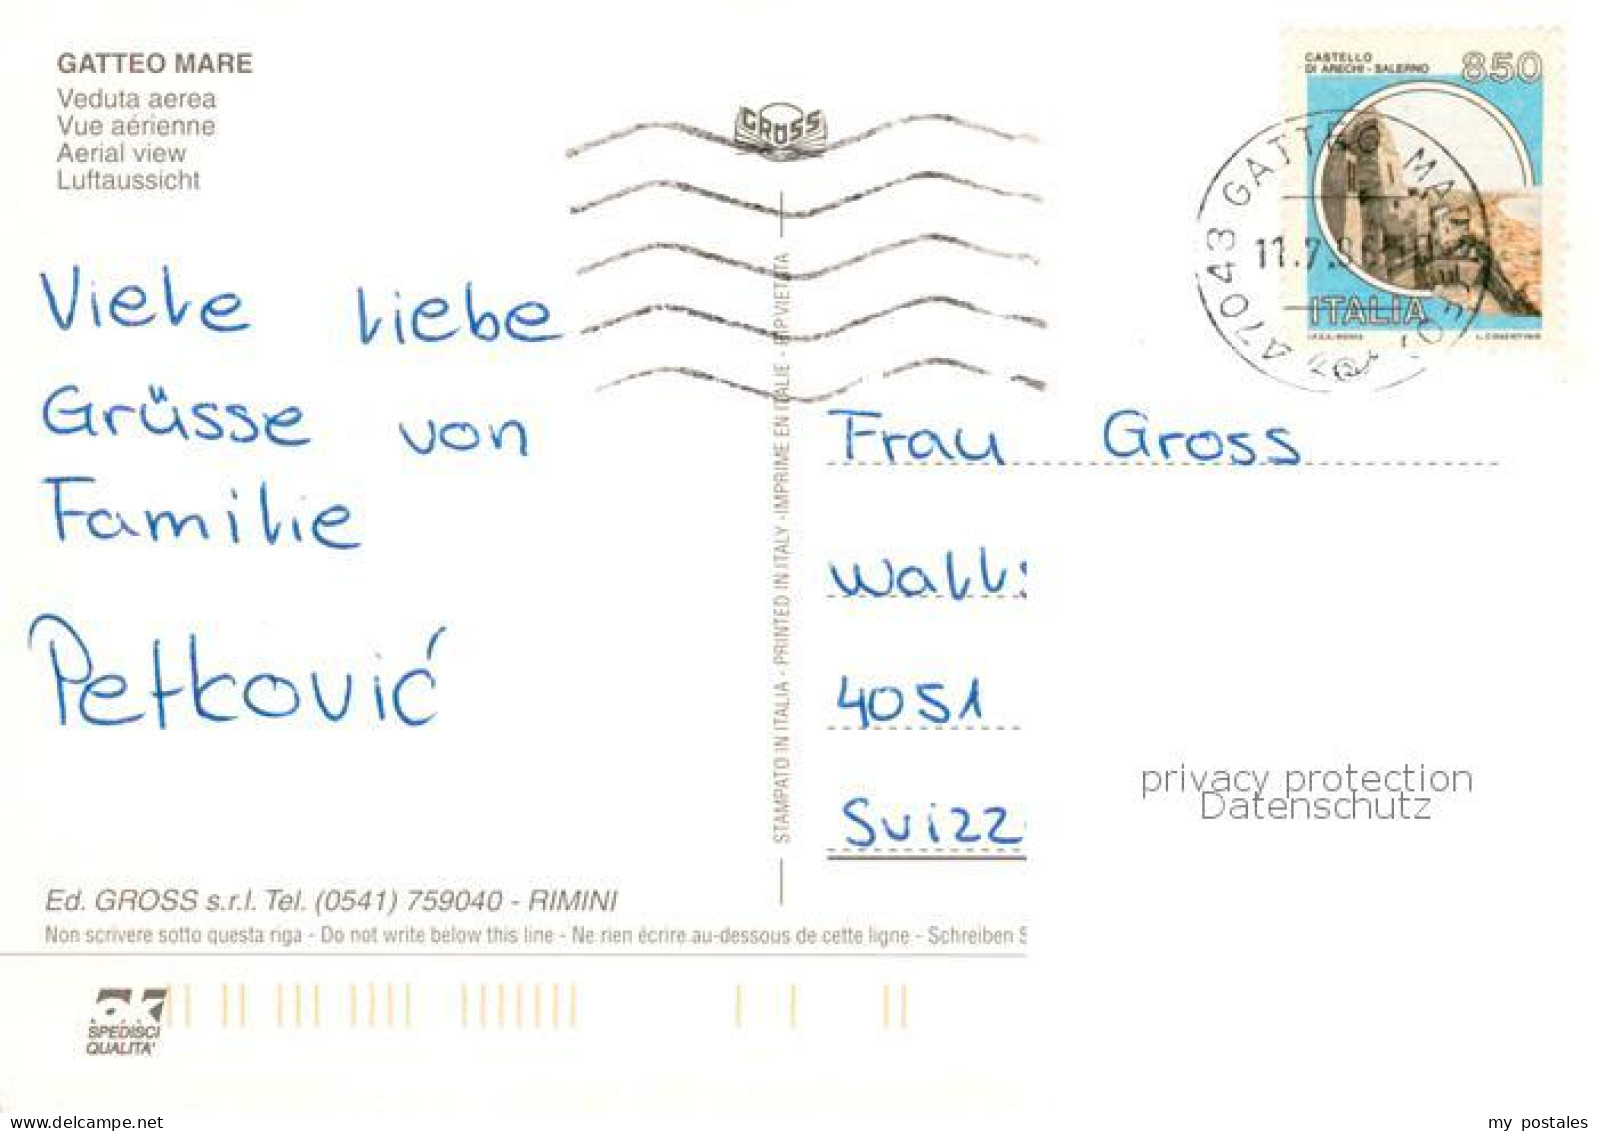 GATTEO MARE
Veduta aerea
Vue aérienne
Aerial view
Luftaussicht
GROSS
CASTELLO
DI ARECHI - SALERNO
850
ITALIA
47043 GATTEO MARE
11.7.
Viele liebe
Grüsse von
Familie
Petković
STAMPATO IN ITALIA - PRINTED IN ITALY - IMPRIME EN ITALIE - RIP. VIETATA
Frau Gross
4051
privacy protection
Datenschutz
Ed. GROSS s.r.l. Tel. (0541) 759040 - RIMINI
Non scrivere sotto questa riga - Do not write below this line - Ne rien écrire au-dessous de cette ligne - Schreiben
SPEDISCI
QUALITA'
www.delcampe.net
my_postales